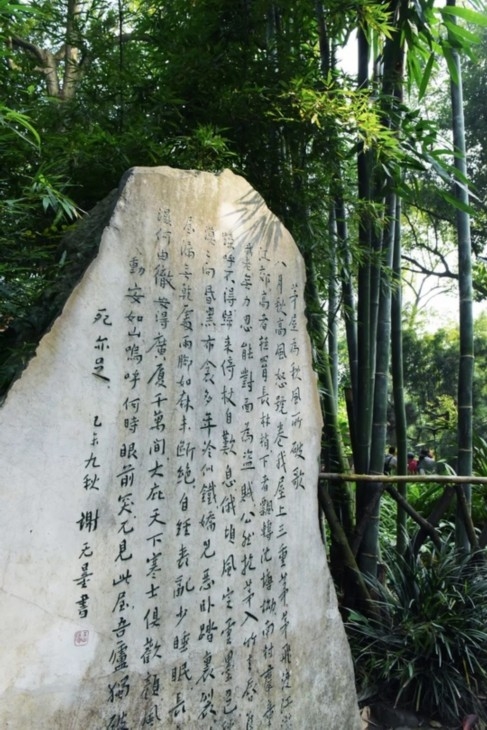 茅屋為秋風所破歌
八月秋高風怒號卷我屋上三重茅茅飛度江灑
江郊高者挂罥長林梢下者飄轉沉塘坳南村群童
老無力忍能對面為盜賊公然抱茅入竹去唇
燥呼不得歸來倚杖自歎息俄頃風定雲墨色
漠漠向昏黑布衾多年冷似鐵嬌兒惡臥踏裏裂
屋漏無乾處雨腳如麻未斷絕自經喪亂少睡眠長
濕何由徹安得廣廈千萬間大庇天下寒士俱歡顏風
動安如山嗚呼何時眼前突兀見此屋吾廬獨破
死亦足
乙未九秋 謝无量書